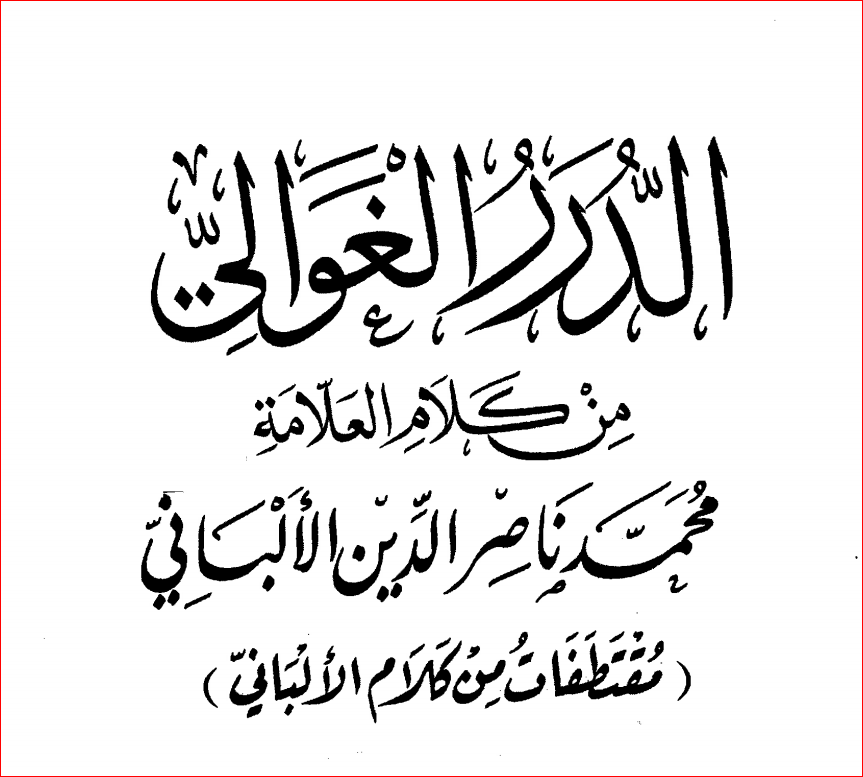 الدُّرَرُ الْغَوَالِيّ
مِنْ كَلَامِ العَلَّامَةِ
مُحَمَّد نَاصِر الدِّيْن الأَلْبَانِيّ
( مُقْتَطَفَاتُ مِنْ كَلَامِ الأَلْبَانِيّ )